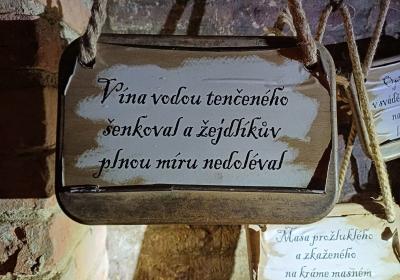 Vína vodou tenčeného
šenkoval a žejdlíkův
plnou míru nedoléval
Masa prožluklého
a zkaženého
na kráme masném
v svádě
na